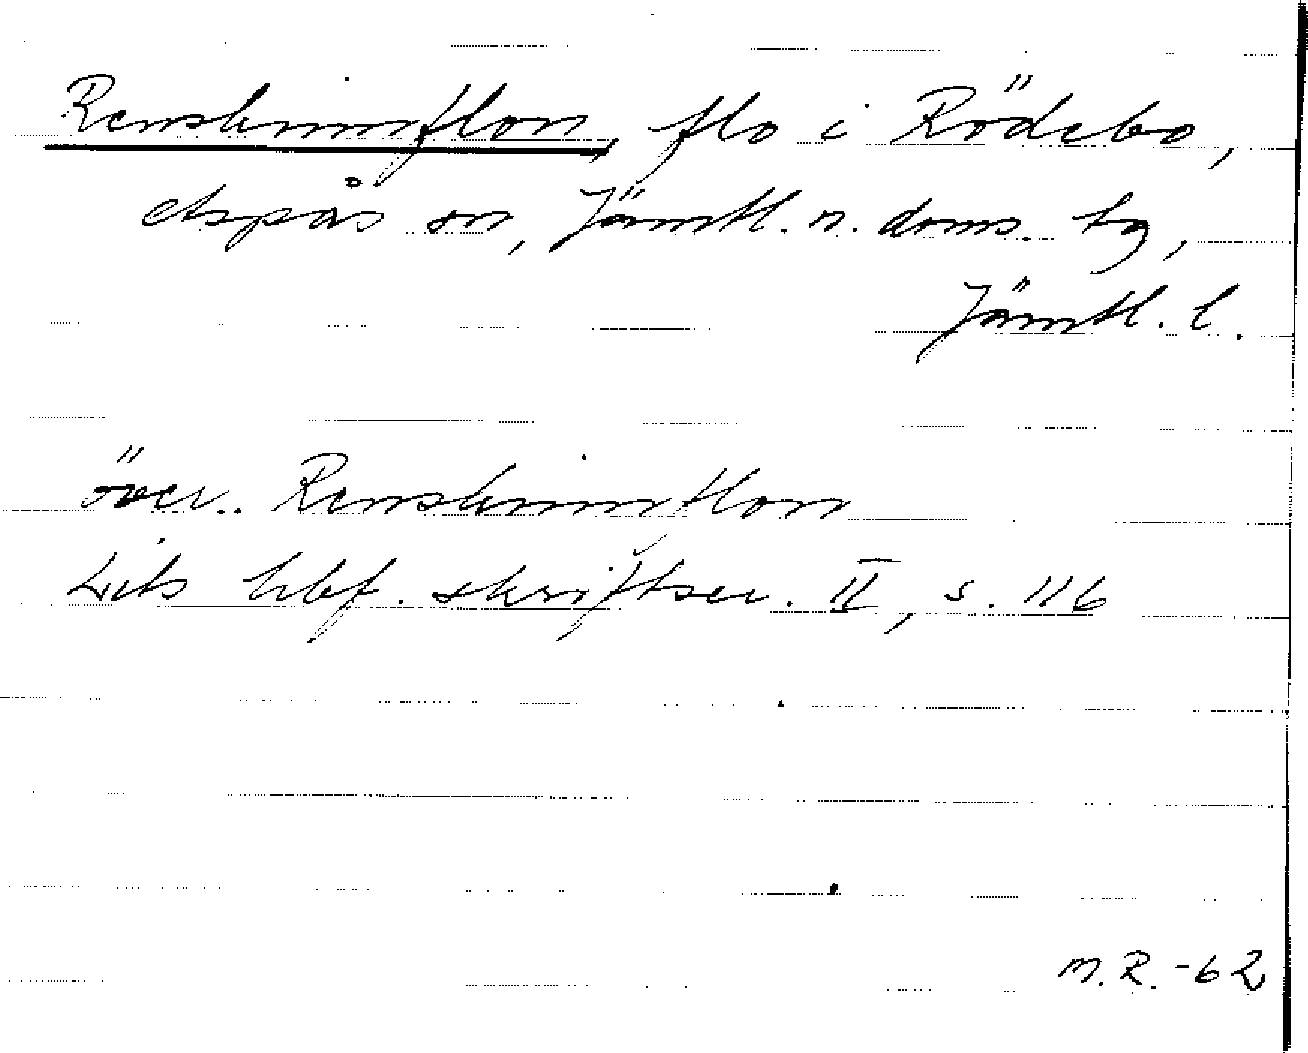 Renskinnflon, flo i Rödebo,
Aspås sn, Jämtl. n. doms. tg,
Jämtl. l.
över. Renskinnflon
Lits hbf. skriftser. II, s. 116
M.R.-62